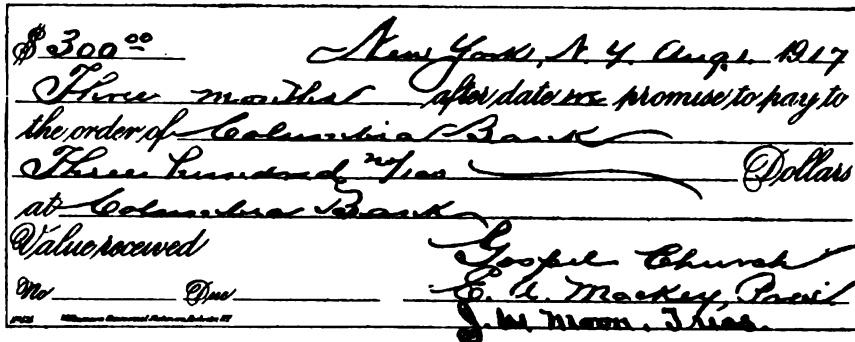 $ 300 00 New York, N. Y. Aug. 1. 1917
Three months after date we promise to pay to
the order of Columbia Bank
Three hundred no/100 Dollars
at Columbia Bank
Value received Gospel Church
No Due E. A. Mackey, Pres't
J. W. Moon, Treas.